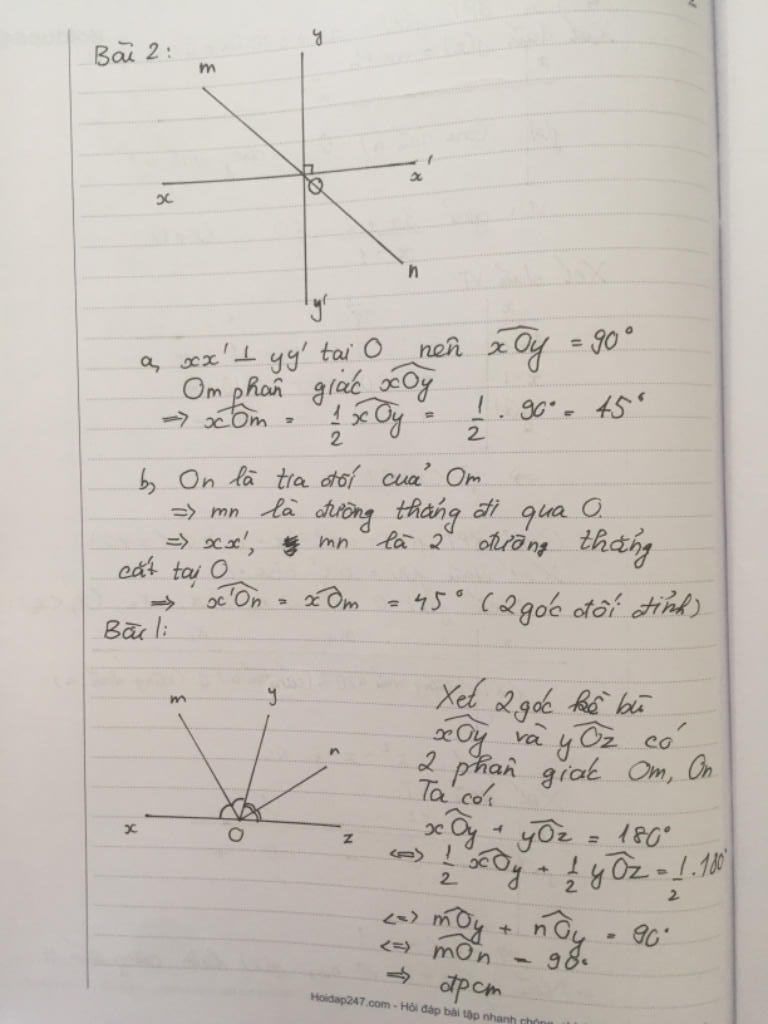 Bài 2:
y
m
x'
x
O
n
y'
a, xx' ⊥ yy' tại O nên xÔy = 90°
Om phân giác xÔy
=> xÔm = 1/2 xÔy = 1/2 . 90° = 45°
b, On là tia đối của Om
=> mn là đường thẳng đi qua O.
=> xx', mn là 2 đường thẳng
cắt tại O
=> x'Ôn = xÔm = 45° (2 góc đối đỉnh)
Bài 1:
m
y
n
x
O
z
Xét 2 góc kề bù
xÔy và yÔz có
2 phân giác Om, On
Ta có:
xÔy + yÔz = 180°
<=> 1/2 xÔy + 1/2 yÔz = 1/2 . 180°
<=> mÔy + nÔy = 90°
<=> mÔn = 90°
=> đpcm
Hoidap247.com - Hỏi đáp bài tập nhanh chóng